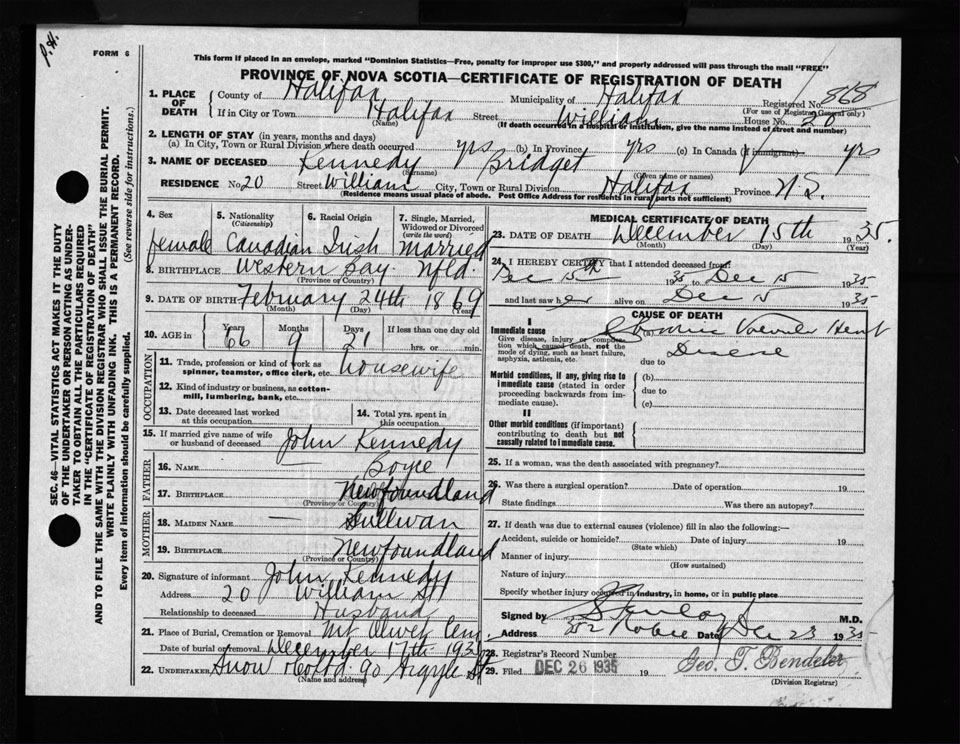 P.H.
FORM 6
This form if placed in an envelope, marked "Dominion Statistics—Free, penalty for improper use $300," and properly addressed will pass through the mail "FREE"
PROVINCE OF NOVA SCOTIA—CERTIFICATE OF REGISTRATION OF DEATH
1. PLACE OF DEATH County of Halifax Municipality of Halifax Registered No. 868
(For use of Registrar General only)
If in City or Town Halifax Street William House No. 20
(Name) (If death occurred in a hospital or institution, give the name instead of street and number)
2. LENGTH OF STAY (in years, months and days)
(a) In City, Town or Rural Division where death occurred yrs (b) In Province yrs (c) In Canada (if immigrant) yrs
3. NAME OF DECEASED Kennedy Bridget
(Surname) (Given name or names)
RESIDENCE No. 20 Street William City, Town or Rural Division Halifax Province N.S.
(Residence means usual place of abode. Post Office Address for residents in rural parts not sufficient)
4. Sex 5. Nationality 6. Racial Origin 7. Single, Married, Widowed or Divorced
(Citizenship) (write the word)
female Canadian Irish Married
8. BIRTHPLACE Western Bay. Nfld.
(Province or Country)
9. DATE OF BIRTH February 24th 1869
(Month) (Day) (Year)
10. AGE in Years Months Days If less than one day old
66 9 21 hrs. or min.
OCCUPATION
11. Trade, profession or kind of work as spinner, teamster, office clerk, etc. Housewife
12. Kind of industry or business, as cotton-mill, lumbering, bank, etc.
13. Date deceased last worked at this occupation
14. Total yrs. spent in this occupation
15. If married give name of wife or husband of deceased John Kennedy
FATHER
16. NAME Boyce
17. BIRTHPLACE Newfoundland
(Province or Country)
MOTHER
18. MAIDEN NAME — Sullivan
19. BIRTHPLACE Newfoundland
(Province or Country)
20. Signature of informant John Kennedy
Address 20 William St
Relationship to deceased Husband
21. Place of Burial, Cremation or Removal Mt Olivet Cem.
Date of burial or removal December 17th 1935
22. UNDERTAKER Snow & Co Ltd 90 Argyle St
(Name and address)
MEDICAL CERTIFICATE OF DEATH
23. DATE OF DEATH December 15th 1935.
(Month) (Day) (Year)
24. I HEREBY CERTIFY that I attended deceased from
Dec 15th 1935 to Dec 15 1935
and last saw her alive on Dec 15 1935
CAUSE OF DEATH
I
Immediate cause (a) Chronic Valvular Heart
Give disease, injury or complication which caused death, not the mode of dying, such as heart failure, asphyxia, asthenia, etc.
Disease
due to
Morbid conditions, if any, giving rise to immediate cause (stated in order proceeding backwards from immediate cause).
(b)
due to
(c)
II
Other morbid conditions (if important) contributing to death but not causally related to immediate cause.
25. If a woman, was the death associated with pregnancy?
26. Was there a surgical operation? Date of operation 19
State findings Was there an autopsy?
27. If death was due to external causes (violence) fill in also the following:—
Accident, suicide or homicide? Date of injury 19
(State which)
Manner of injury
(How sustained)
Nature of injury
Specify whether injury occurred in industry, in home, or in public place
Signed by M.D.
Address 252 Robie Date Dec 23 1935
28. Registrar's Record Number
29. Filed DEC 26 1935 19 Geo. T. Bendeler
(Division Registrar)
SEC. 46—VITAL STATISTICS ACT MAKES IT THE DUTY
OF THE UNDERTAKER OR PERSON ACTING AS UNDER-
TAKER TO OBTAIN ALL THE PARTICULARS REQUIRED
IN THE "CERTIFICATE OF REGISTRATION OF DEATH"
AND TO FILE THE SAME WITH THE DIVISION REGISTRAR WHO SHALL ISSUE THE BURIAL PERMIT.
WRITE PLAINLY WITH UNFADING INK. THIS IS A PERMANENT RECORD.
Every item of information should be carefully supplied. (See reverse side for instructions.)